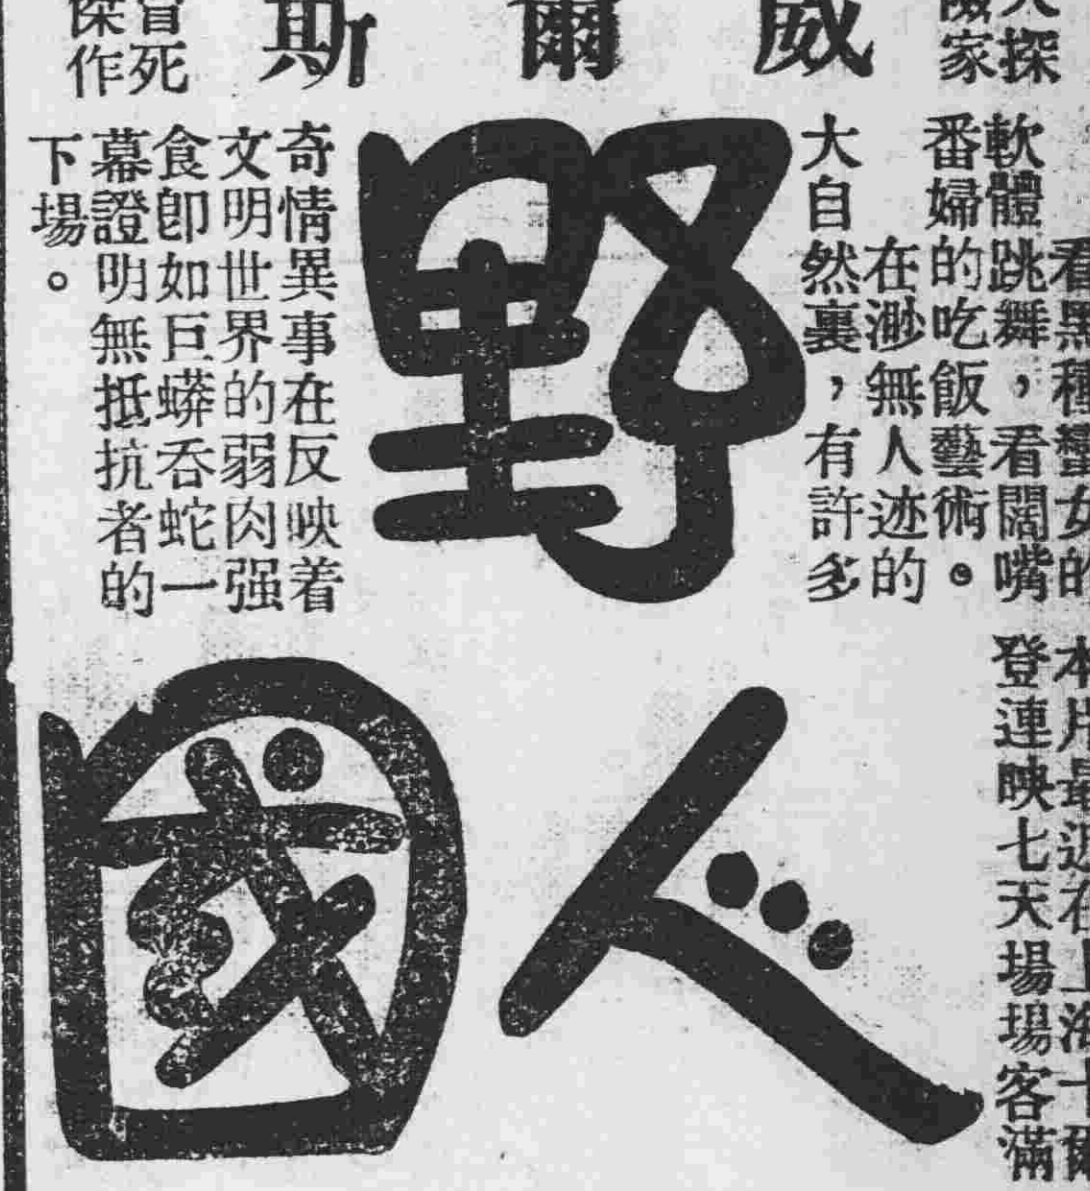 大探
險家
威爾斯
冒死
傑作
看黑種蠻女的
軟體跳舞，看闊嘴
番婦的吃飯藝術。
在渺無人迹的
大自然裏，有許多
野人國
奇情異事在反映着
文明世界的弱肉强
食卽如巨蟒吞蛇一
幕證明無抵抗者的
下場。
本片最近在上海卡爾
登連映七天場場客滿